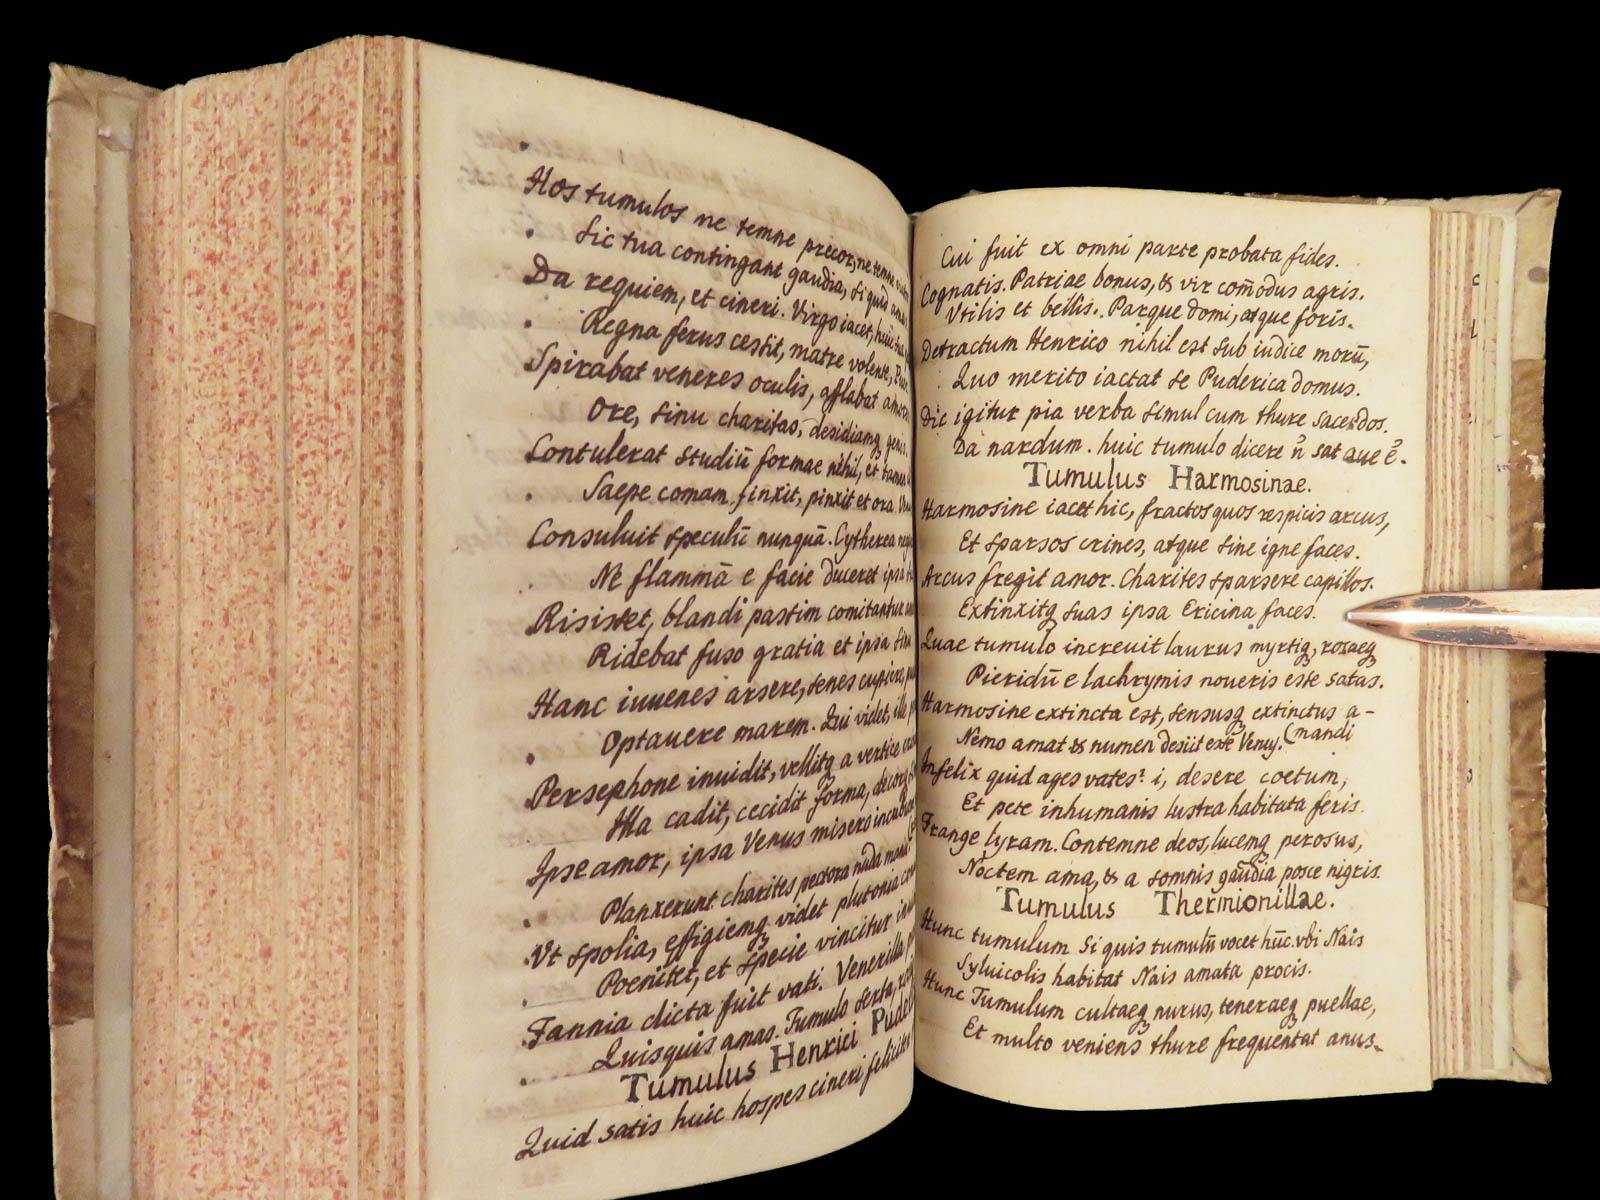 Hos tumulos ne temne precor, ne temne
Sic tua contingant gaudia, si quid
Da requiem, et cineri. Virgo iacet, huic
Regna ferus cessit, matre volente,
Spirabat veneres oculis, afflabat
Ore, sinu charitas, desidiamq genis.
Contulerat studiū formae nihil, et tamen
Saepe comam finxit, pinxit et ora
Consuluit speculū nunquā. Cytherea
Ne flammā e facie duceret ipsa
Risisset, blandi passim comitantur
Ridebat fuso gratia et ipsa sinu
Hanc iuuenes arsere, senes cupiere,
Optauere marem. Qui videt, ille
Persephone inuidit, vellitq a vertice
Illa cadit, cecidit forma,
Ipse amor, ipsa Venus misero
Planxerunt charites pectora nuda manu
Vt spolia, effigiemq videt plutonia
Poenitet, et specie vincitur
Fannia dicta fuit vati. Venerilla
Quisquis amas. Tumulo serta,
Tumulus Henrici
Quid satis huic hospes cineri
Cui fuit ex omni parte probata fides.
Cognatis. Patriae bonus, & vir com̄odus agris.
Vtilis et bellis. Parque domi, atque foris.
Detractum Henrico nihil est sub iudice morū,
Quo merito iactat se Puderica domus.
Dic igitur pia verba simul cum thure sacerdos.
Da nardum. huic tumulo dicere n̄ sat aue ē.
Tumulus Harmosinae.
Harmosine iacet hic, fractos quos respicis arcus,
Et sparsos crines, atque sine igne faces.
Arcus fregit amor. Charites sparsere capillos.
Extinxitq suas ipsa Ericina faces.
Quae tumulo increuit laurus myrtiq, rosaeq
Pieridū e lachrymis noueris esse satas.
Harmosine extincta est, sensusq extinctus a-
Nemo amat & numen desiit esse Venus. (mandi
Infelix quid ages vates? i, desere coetum,
Et pete inhumanis lustra habitata feris.
Frange lyram. Contemne deos, lucemq perosus,
Noctem ama, & a somnis gaudia posce nigris.
Tumulus Thermionillae.
Hunc tumulum si quis tumulū vocet hūc. vbi Nais
Syluicolis habitat Nais amata procis.
Hunc Tumulum cultaeq nurus, teneraeq puellae,
Et multo veniens thure frequentat anus.